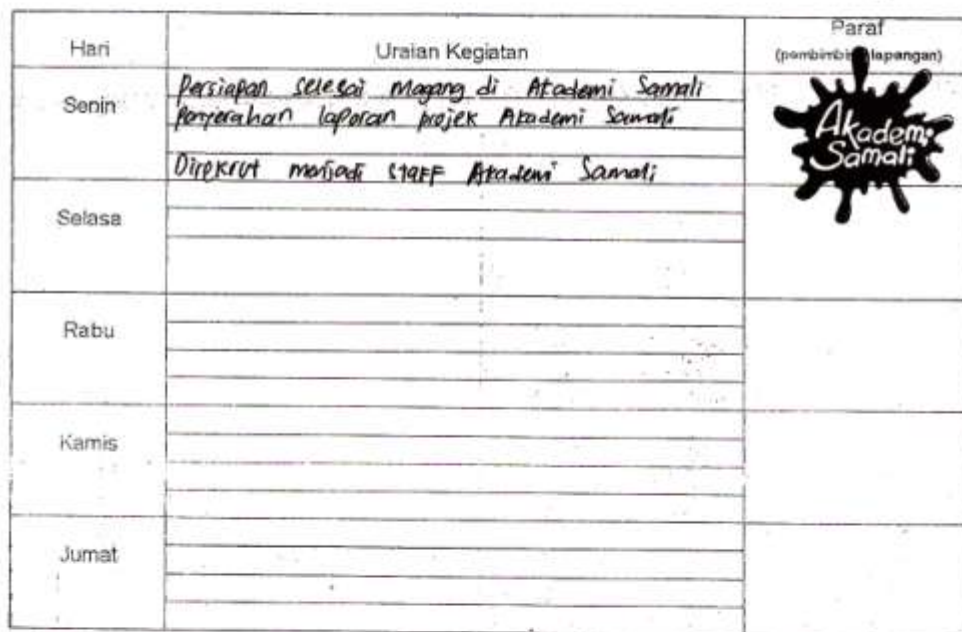 Hari
Uraian Kegiatan
Paraf
(pembimbing lapangan)
Senin
Persiapan selesai magang di Akademi Samali
Penyerahan laporan projek Akademi Samali
Direkrut menjadi staff Akademi Samali
Akademi
Samali
Selasa
Rabu
Kamis
Jumat